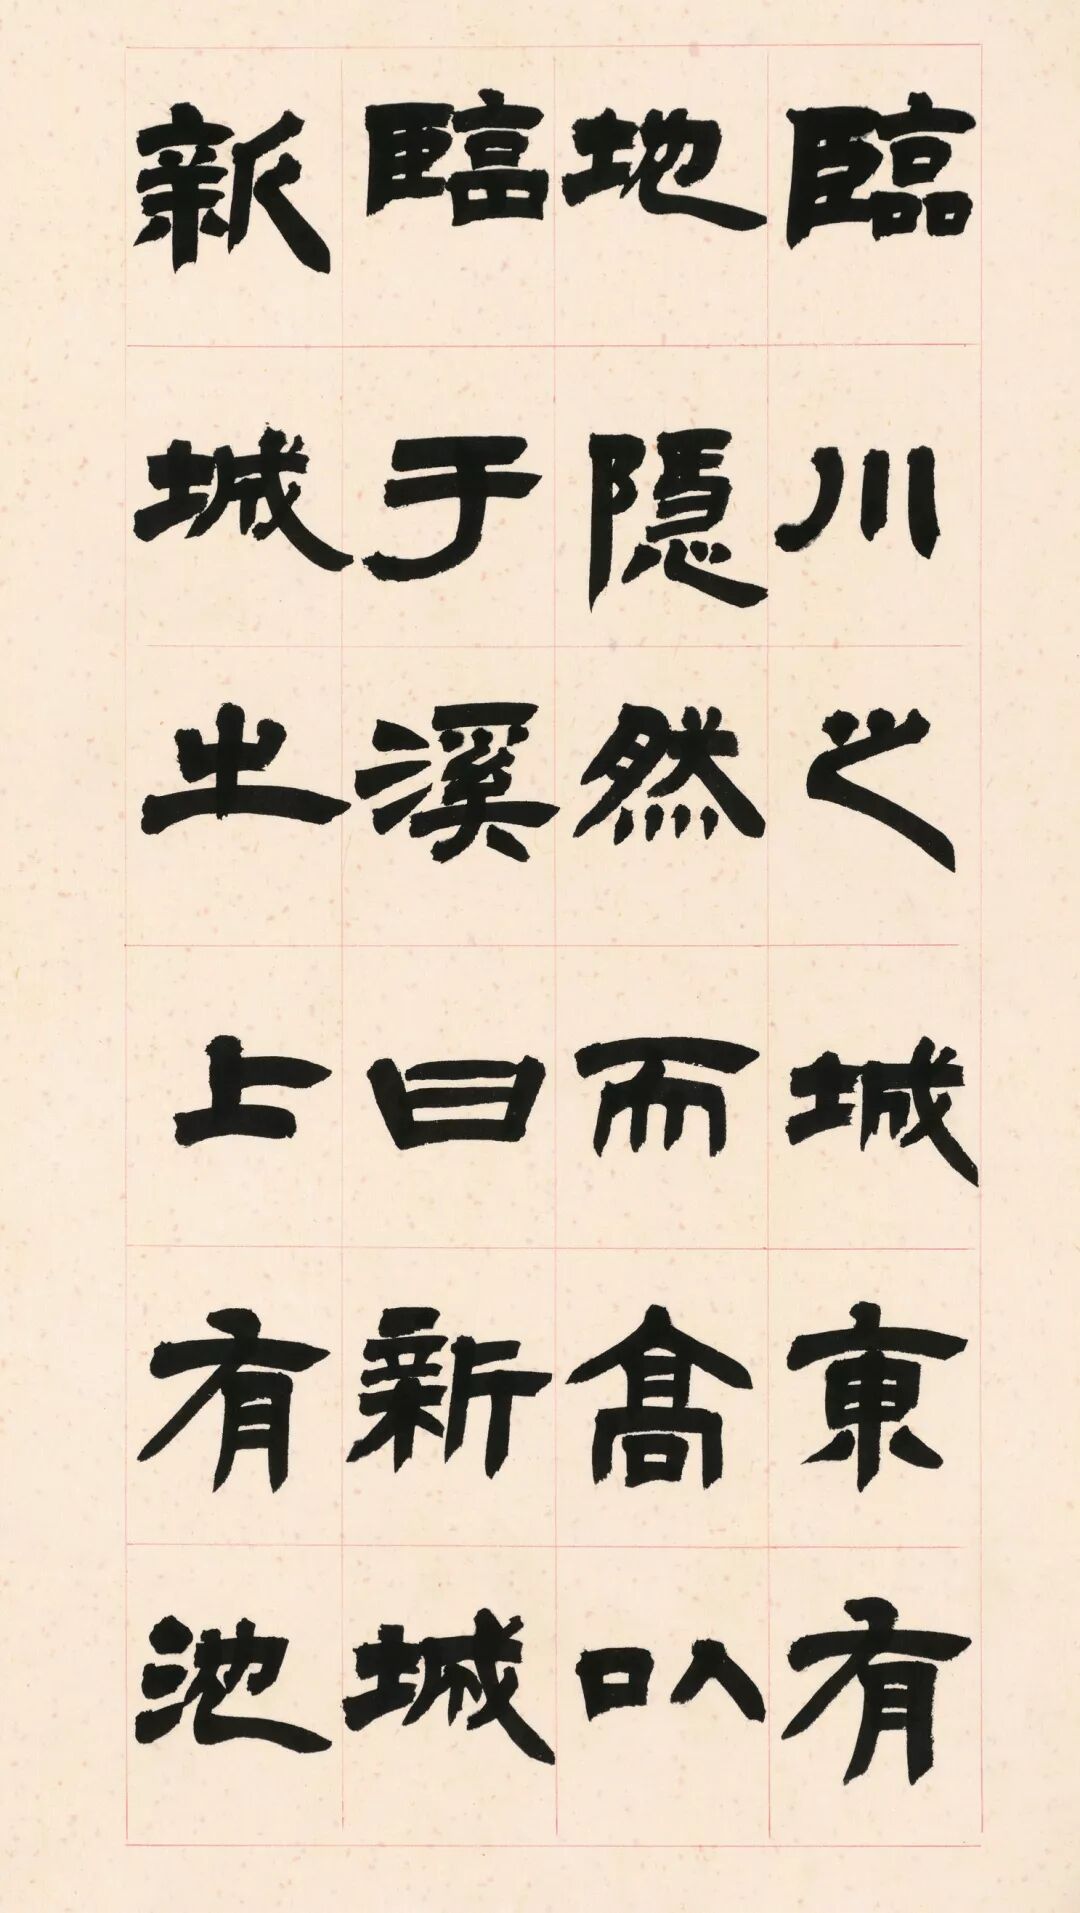 臨川之城東有
地隱然而高以
臨于溪曰新城
新城之上有池